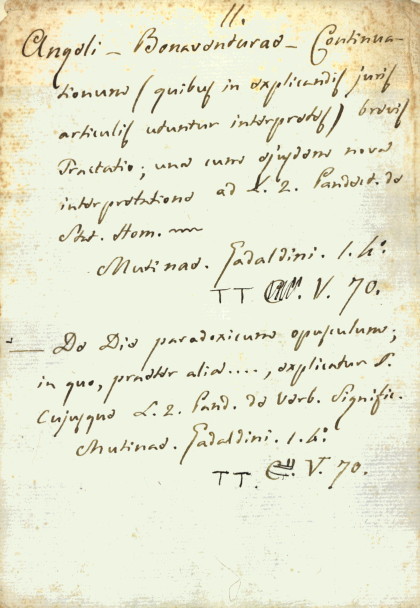 11.
Angeli - Bonaventurae - Continua-
tionum (quibus in explicandis juris
articulis utuntur interpretes) brevis
Tractatio; una cum ejusdem nova
interpretatione ad L. 2. Pandect. de
Stat. Hom.
Mutinae. Gadaldini. 1. 4.º
TT V. 70.
— De Die paradoxicum opusculum;
in quo, praeter alia...., explicatur
Cujusque L. 2. Pand. de Verb. Signific.
Mutinae. Gadaldini. 1. 4.º
TT. V. 70.